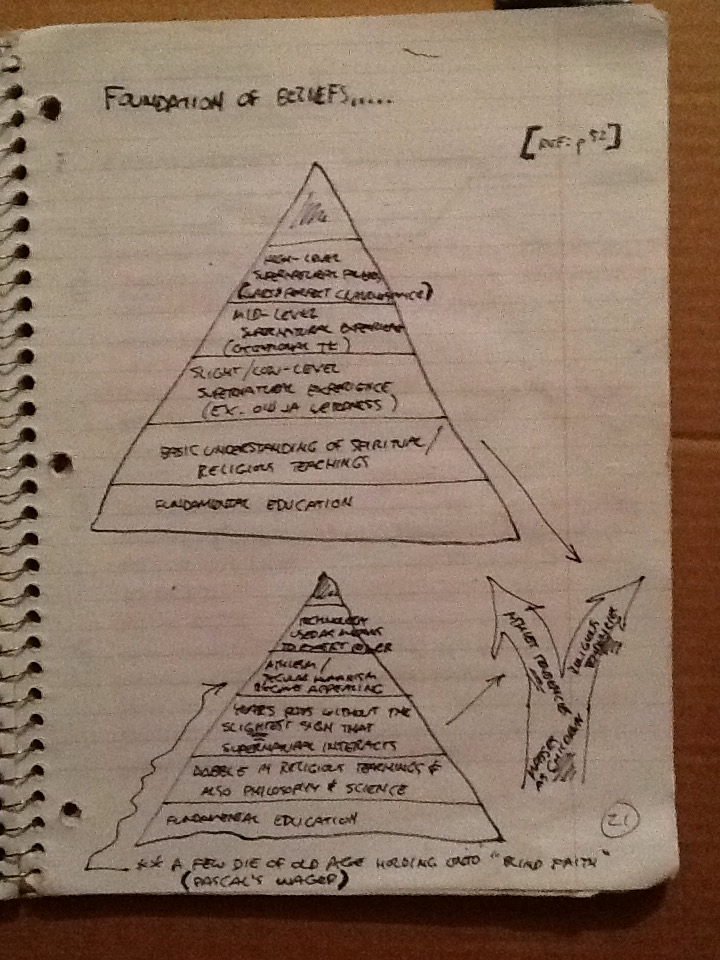 FOUNDATION OF BELIEFS.....
[REF: p 52]
HIGH-LEVEL
SUPERNATURAL
MID-LEVEL
SUPERNATURAL EXPERIENCE
(OCCASIONAL
SLIGHT/LOW-LEVEL
SUPERNATURAL EXPERIENCE
(EX. OUIJA WEIRDNESS)
BASIC UNDERSTANDING OF SPIRITUAL/
RELIGIOUS TEACHINGS
FUNDAMENTAL EDUCATION
TECHNOLOGY
USED AS MEANS
TO EXERT POWER
ATHEISM/
SECULAR HUMANISM
BECOME APPEARING
YEARS PASS WITHOUT THE
SLIGHTEST SIGN THAT
SUPERNATURAL INTERACTS
DABBLE IN RELIGIOUS TEACHINGS &
ALSO PHILOSOPHY & SCIENCE
FUNDAMENTAL EDUCATION
ATHEIST TENDENCIES
RELIGIOUS TENDENCIES
MASSES
AS CHILDREN
21
** A FEW DIE OF OLD AGE HOLDING ONTO "BLIND FAITH"
(PASCAL'S WAGER)